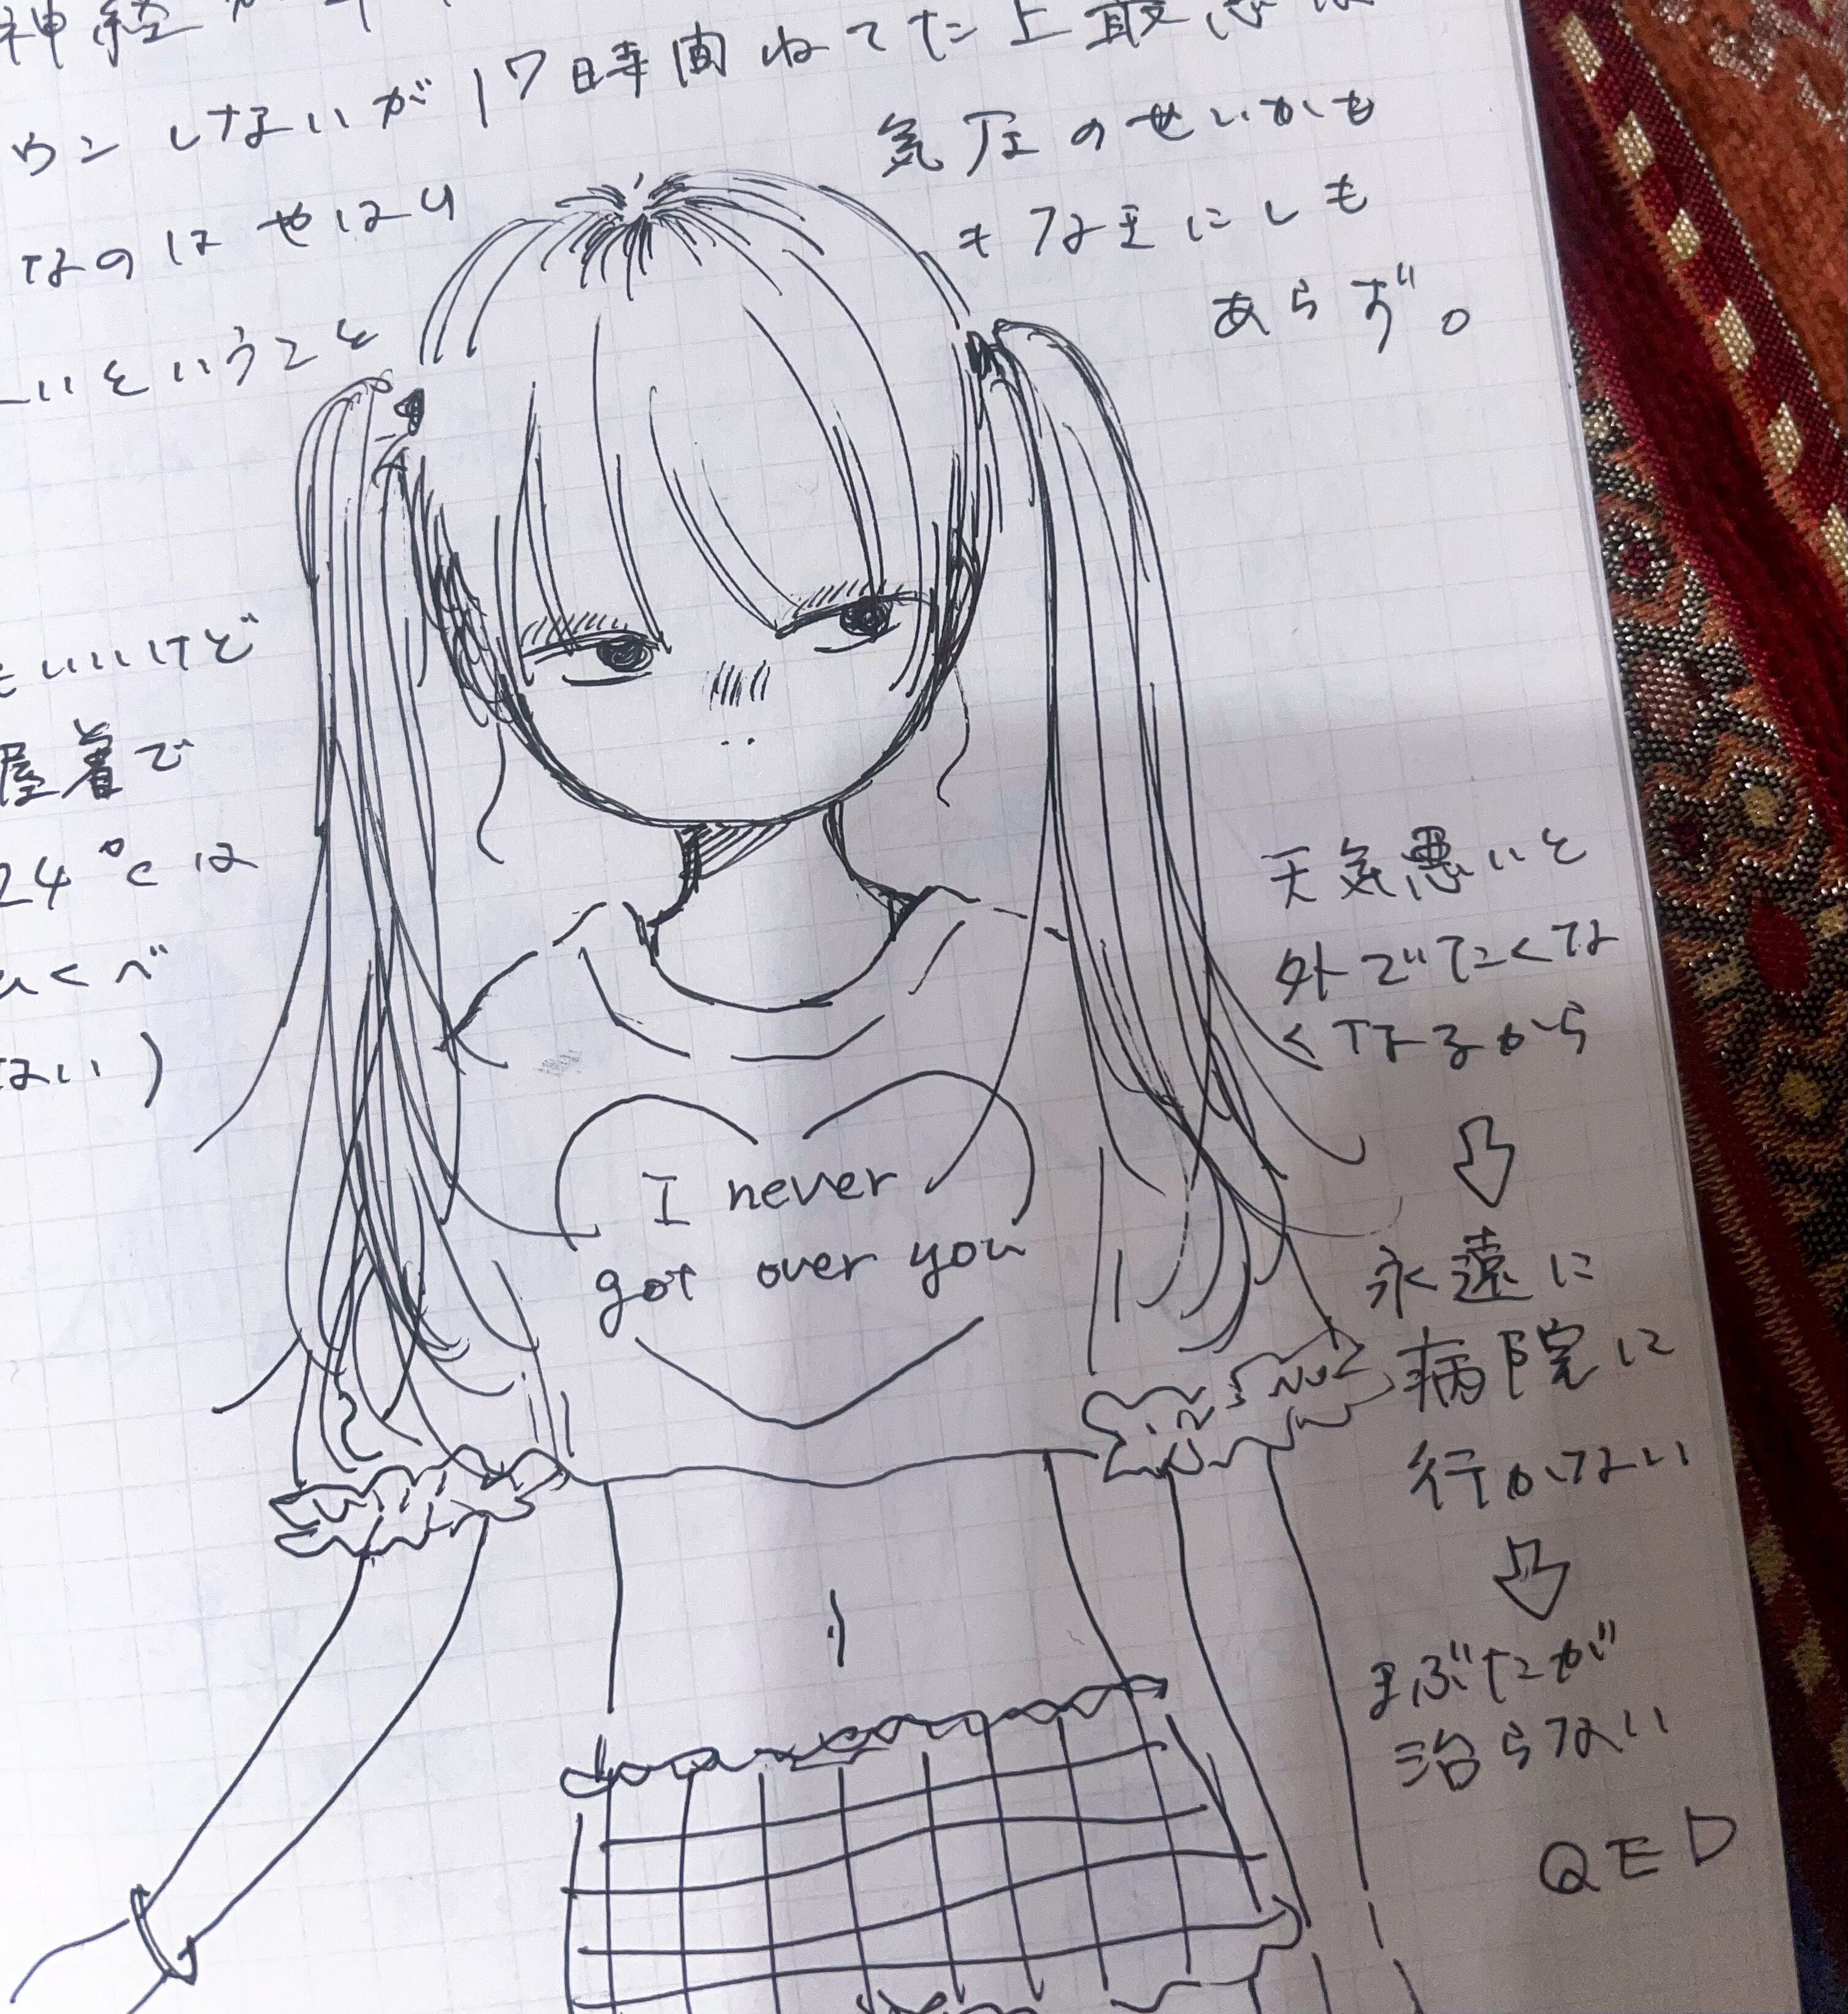 神経が
ウンしないが17時間ねてた上最悪な
なのはやはり
いということ
気圧のせいかも
とな主にしも
あらず。
もいいけど
屋着で
24℃は
くべ
ない)
I never
got over you
天気悪いと
外でたくな
くなるから
⇩
永遠に
病院に
行かない
⇩
まぶたが
治らない
QED